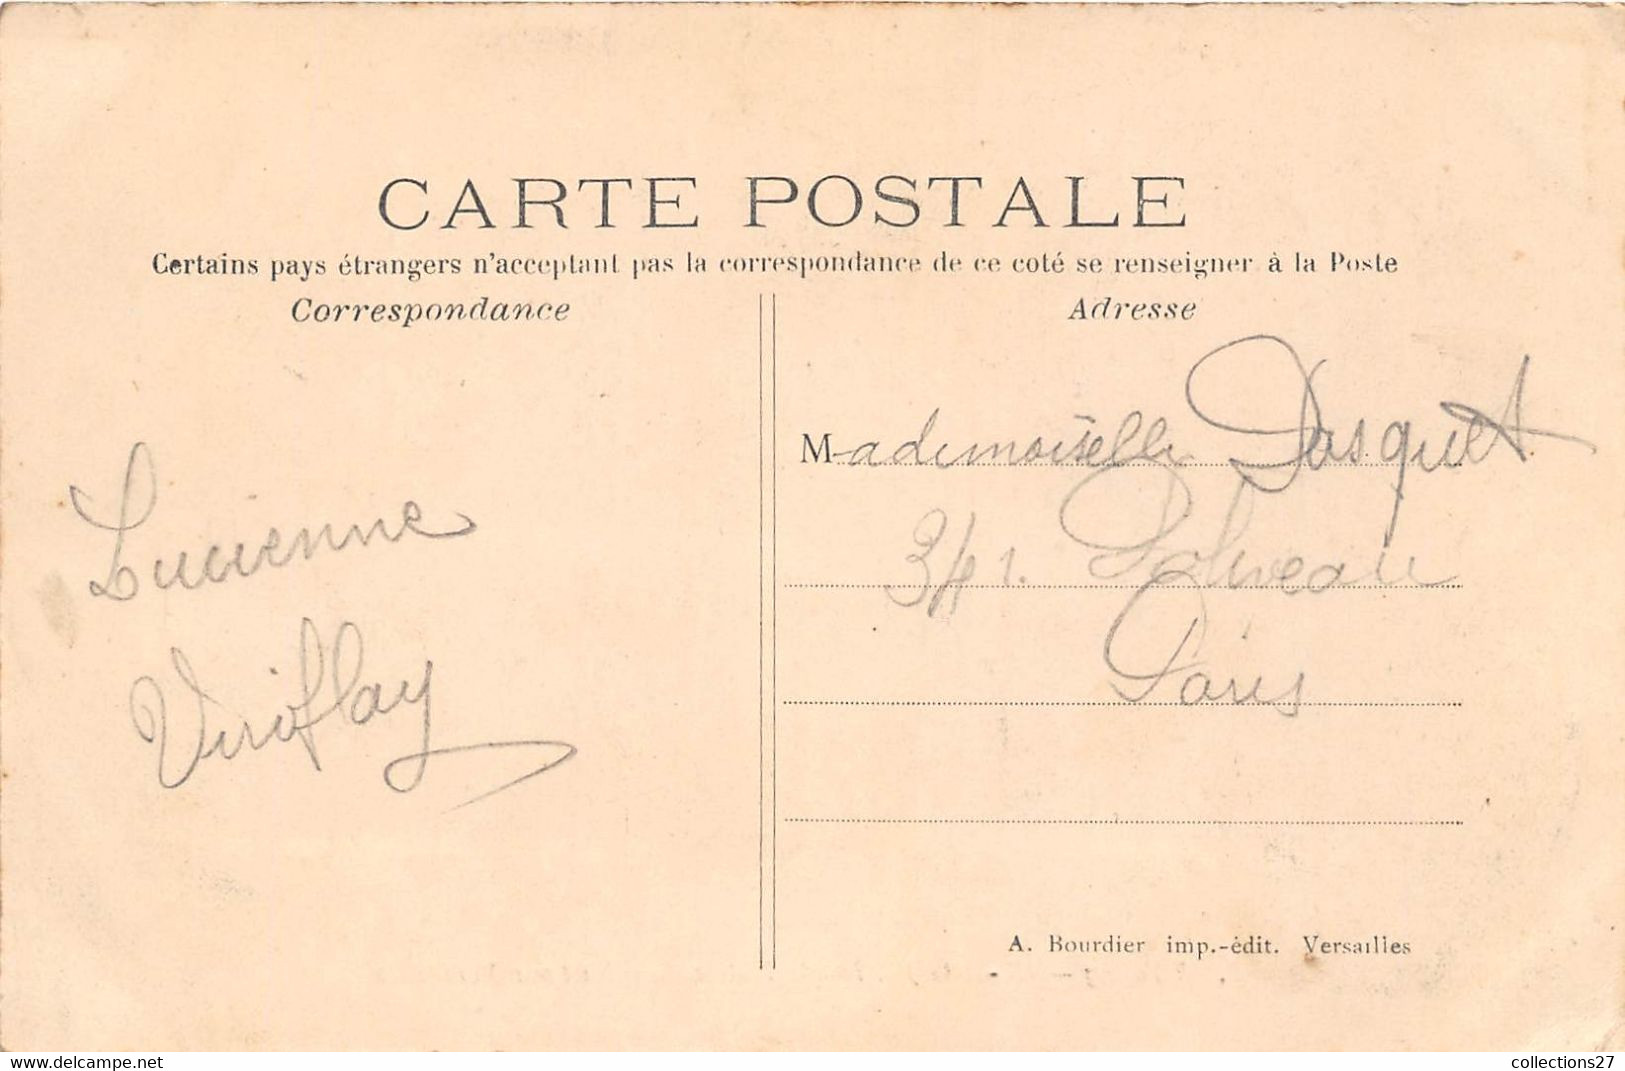 CARTE POSTALE
Certains pays étrangers n'acceptant pas la correspondance de ce coté se renseigner à la Poste
Correspondance
Adresse
Lucienne
Viroflay
Mademoiselle Pasquet
34 r. Poliveau
Paris
A. Bourdier imp.-édit. Versailles
www.delcampe.net
collections27